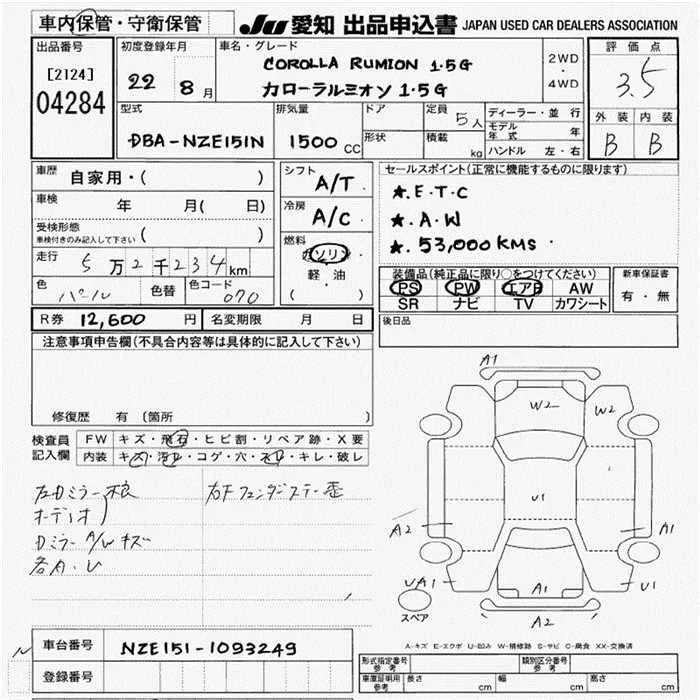 車内保管・守衛保管
JU 愛知 出品申込書 JAPAN USED CAR DEALERS ASSOCIATION
出品番号
[2124]
04284
初度登録年月
22 8 月
車名・グレード
COROLLA RUMION 1.5G
カローラルミオン 1.5G
2WD
・
4WD
評価点
3.5
外装 内装
B B
型式
DBA-NZE151N
排気量
1500 CC
ドア
形状
定員 5人
積載 kg
ディーラー・並行
モデル年式 年
ハンドル 左・右
車歴 自家用・( )
車検 年 月( 日)
受検形態
車検付きのみ記入して下さい ( )
走行 5万2千234km
色 パール 色替 色コード 070
シフト
A/T
冷房
A/C
燃料
ガソリン
軽・油
( )
セールスポイント(正常に機能するものに限ります)
★.E.T.C
★.A.W
★.53,000KMS
装備品(純正品に限り○をつけてください)
PS PW エアB AW
SR ナビ TV カワシート
新車保証書
有・無
R券 12,600 円 名変期限 月 日
後日品
注意事項申告欄(不具合内容等は具体的に記入して下さい)
修復歴 有 〔箇所 〕
検査員
記入欄
FW キズ・飛石・ヒビ割・リペア跡・X要
内装 キズ・汚れ・コゲ・穴・スレ・キレ・破レ
オーディオ
各A.U
A1
W2
W2
U1
A2
A1
UA1
A1
U1
A2
スペア
A-キズ E-エクボ U-凹み W-補修跡 S-サビ C-腐食 XX-交換済
車台番号 NZE151-1093249
登録番号
形式指定番号
参考
類別区分番号
参考
車庫証明用
参考
長さ cm 幅 cm 高さ cm